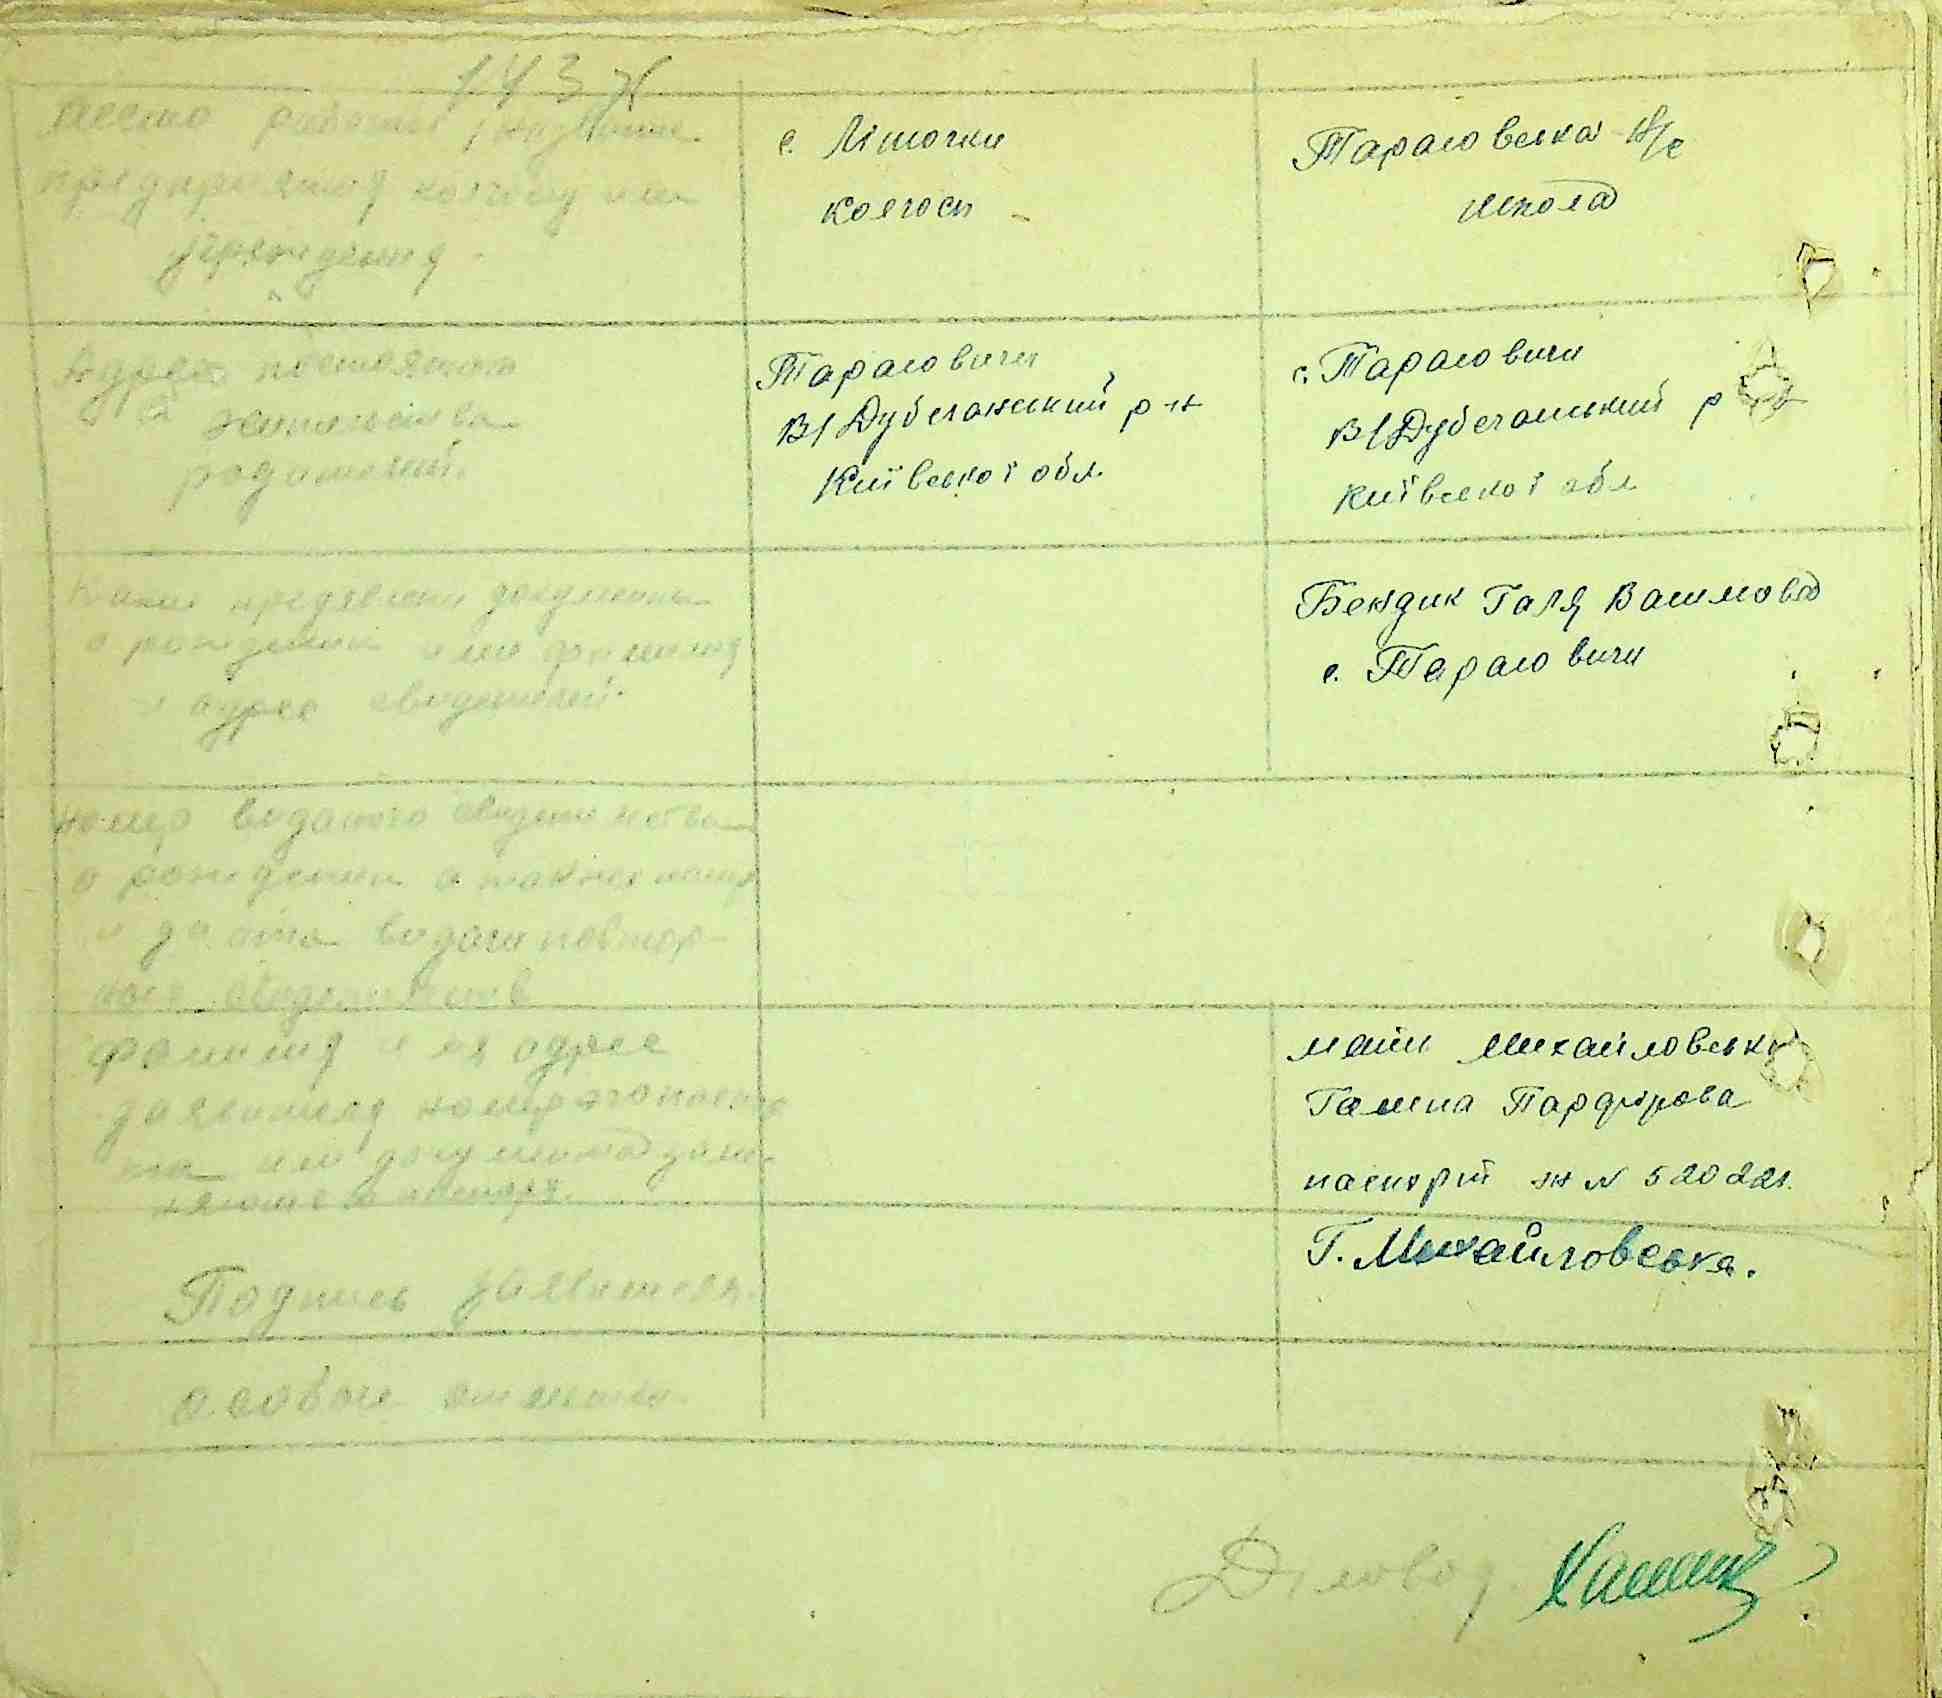 143
место работы, название
предприятия колхозу или
учреждения
с. Літочки
колгосп
Тарасовська Н/с
школа
Адрес постоянного
жительства
родителей.
Тарасовичи
В/Дубечанський р-н
Київської обл.
с. Тарасовичи
В/Дубечанський р
Київської обл
Какие предявлены документы
о рождении или фамилия
и адрес свидетелей.
Бендик Галя Васильова
с. Тарасовичи
номер виданого свидетельства
о рождении а также номер
и дата видачи повтор-
ного свидетельства
Фамилия и ея адрес
заявителя номер его паспор
та или документа заме-
няющего паспорт.
мати Михайловська
Галина Парфірова
паспорт № 520221.
Подпись заявителя.
Г. Михайловська.
особые отметки.
Діловод